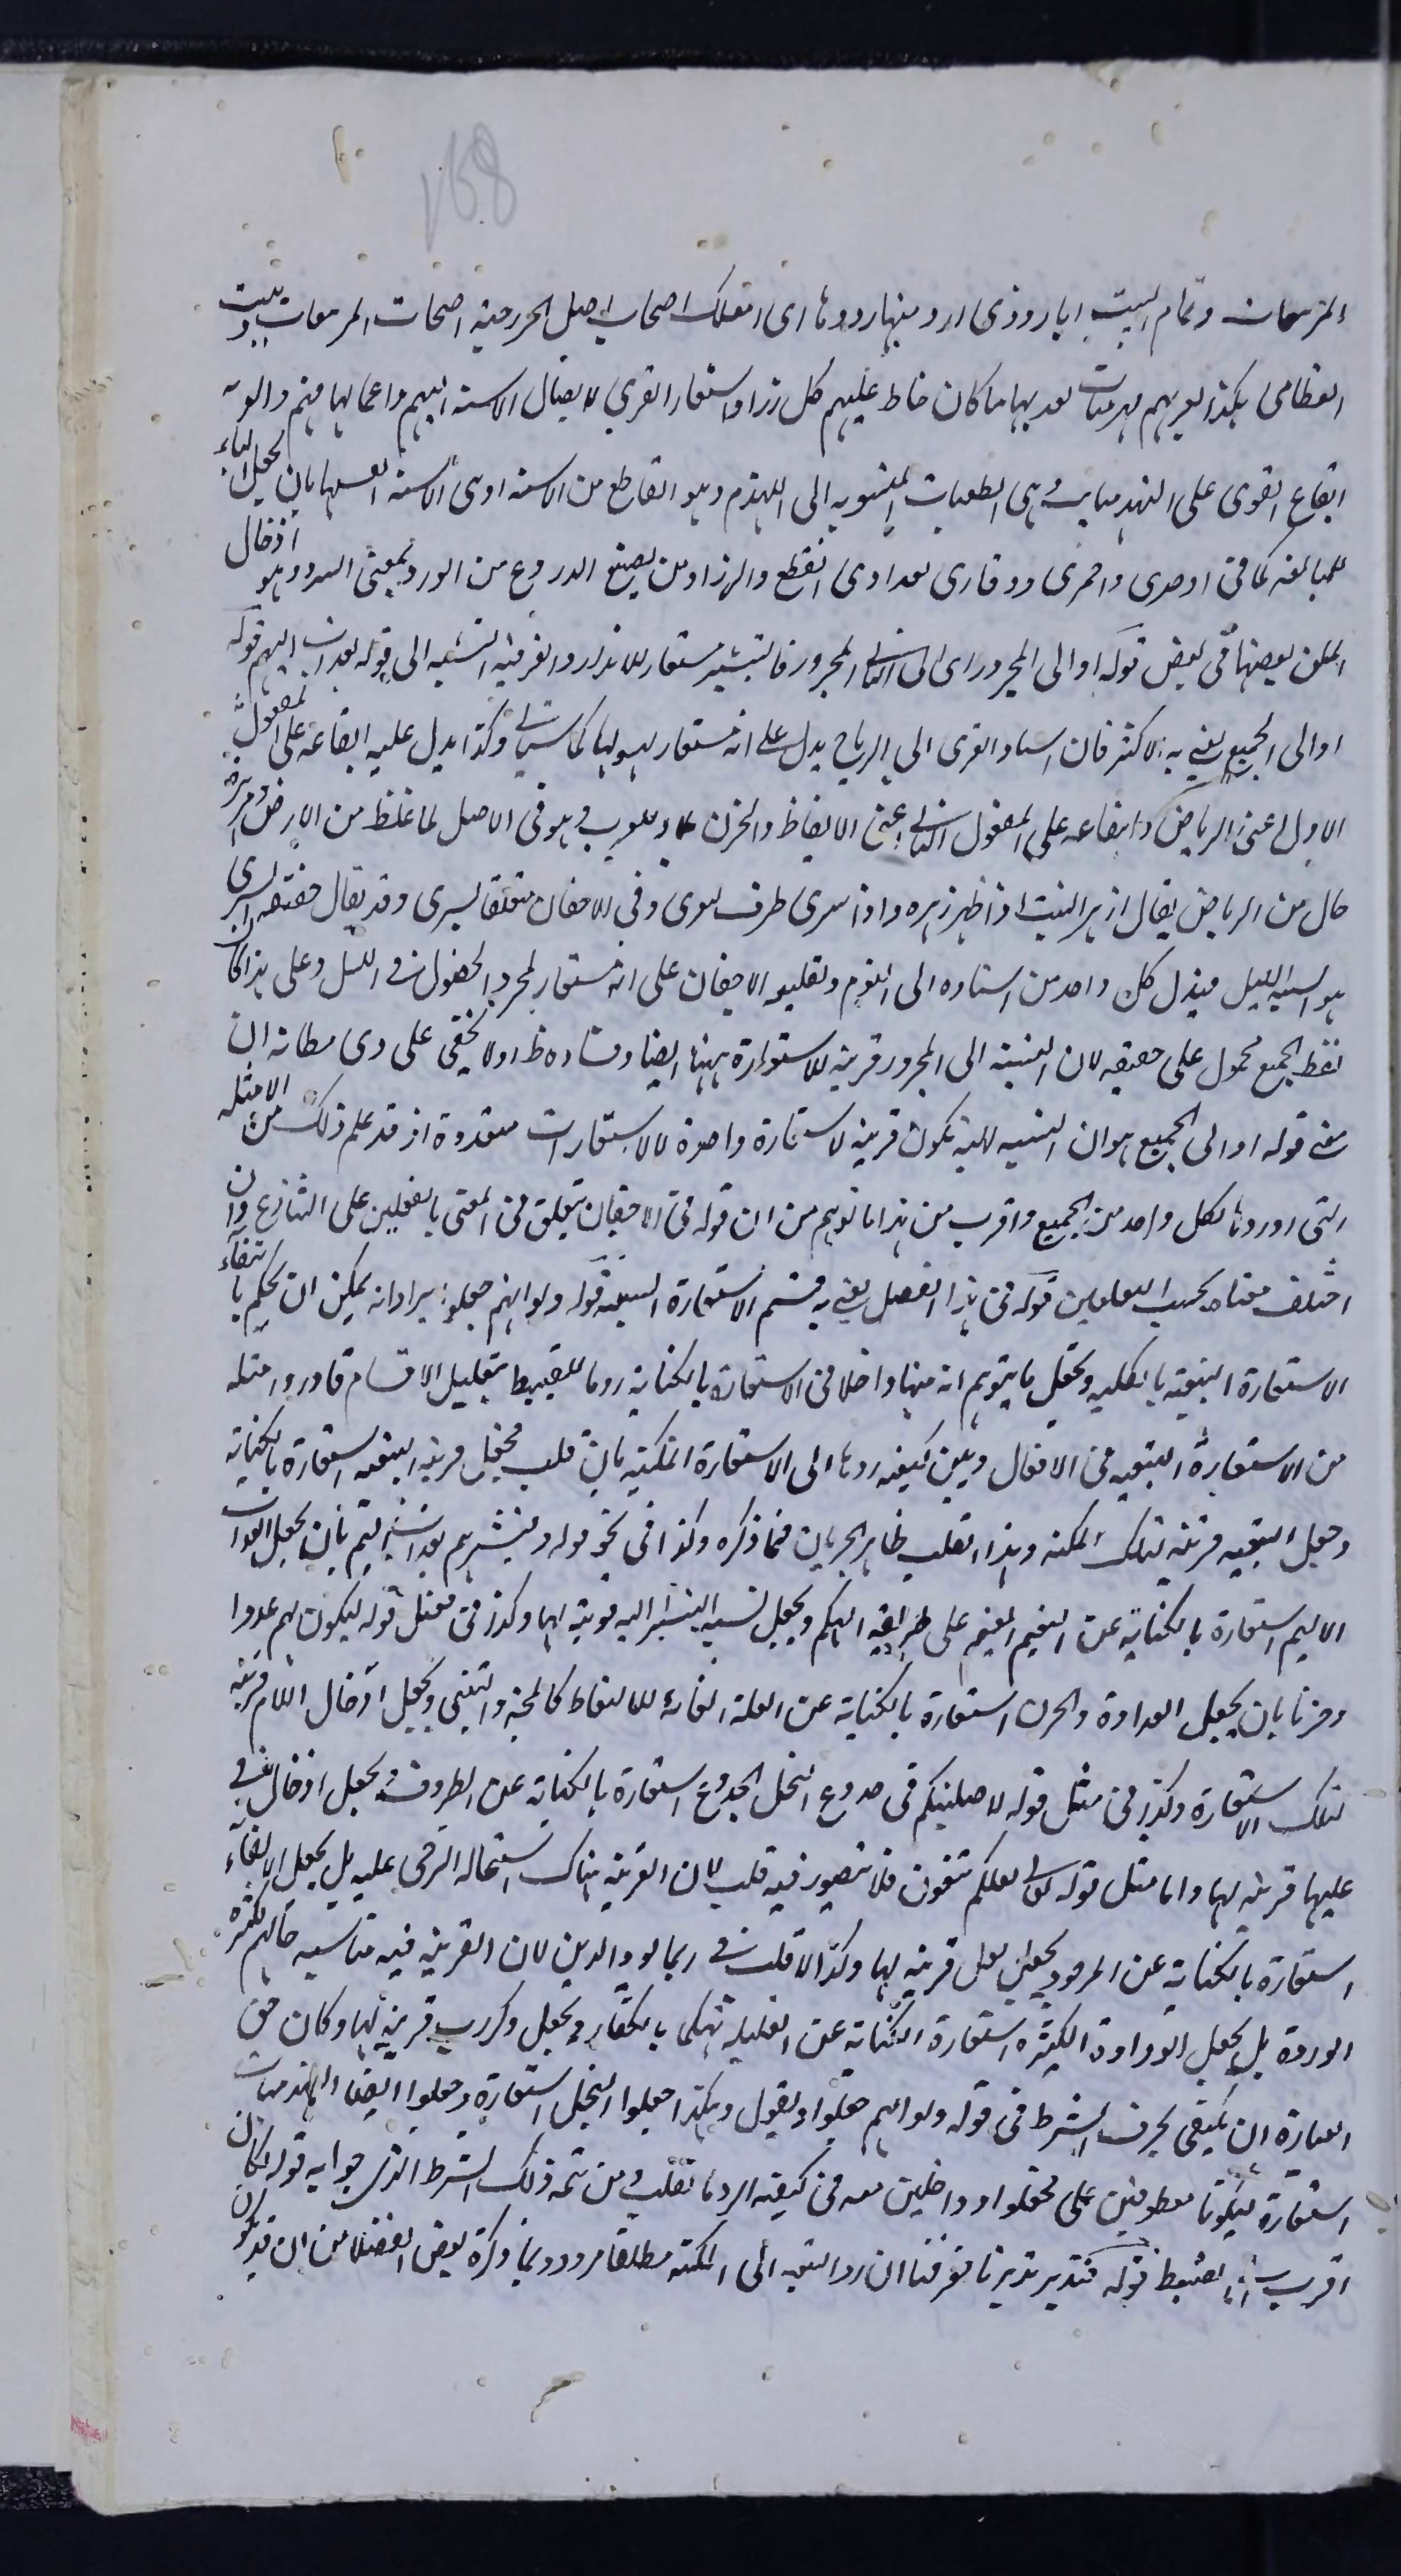 168
المرهفات وتمام البيت ابار وذوى ارومتها ذووها اى اهلك اصحاب اصل الخزرجية اصحاب المرهفات وبيت
القطامى هكذا نقريهم لهذميات نقد بها ما كان خاط عليهم كل زراد استعار القرى لايصال الاسنة اليهم واعمالها فيهم والو
ايقاع القرى على اللهذميات وهى الطعنات المنسوبة الى اللهذم وهو القاطع من الاسنة او هى الاسنة انفسها بان يجعل الياء
للمبالغة كما فى اوحدى واحمرى ودوارى نقد اى القطع والزراد من يصنع الدروع من الزرد بمعنى السرد وهو ادخال
الحلق بعضها فى بعض قوله او الى المجرور اى الى الثانى المجرور فالتبشير مستعار للانذار والقرينة النسبة الى قوله بعذاب اليم قوله
او الى الجميع يعنى به الاكثر فان اسناد القرى الى الرياح يدل على انه مستعار لهبوبها كما سياتى وكذا يدل عليه ايقاعه على المفعول
الاول اعنى الرياض وايقاعه على المفعول الثانى اعنى الايقاظ والحزن وهو فى الاصل لما غلظ من الارض ومزهرة
حال من الرياض يقال ازهر النبت اذا ظهر زهره واذا سرى ظرف لتقرى وفى الاجفان متعلق بسرى وقد يقال حقيقة السرى
هو السير بالليل فيدل كل واحد من اسناده الى النوم وتعليقه الاجفان على انه مستعار لمجرد الحصول فى الليل وعلى هذا كان
لفظ الجميع محمول على حقيقته لان النسبة الى المجرور قرينة للاستعارة ههنا ايضا وفساده ظ اذ لا يخفى على ذى مطانة ان
معنى قوله او الى الجميع هو ان النسبة اليه تكون قرينة لاستعارة واحدة لا لاستعارات متعددة اذ قد علم ذلك من الامثلة
التى اوردها لكل واحد من الجميع واقرب من هذا ما توهم من ان قوله فى الاجفان يتعلق فى المعنى بالفعلين على التنازع وان
اختلف معناه بحسب التعلقين قوله فى هذا الفصل يعنى به قسم الاستعارة التبعية قوله ولو انهم جعلوا يراد انه يمكن ان يحكم بانتفاء
الاستعارة التبعية بالكلية ويجعل ما يتوهم انه منها داخلا فى الاستعارة بالكناية روما للضبط بتقليل الاقسام فاورد امثلة
من الاستعارة التبعية فى الافعال وبين كيفية ردها الى الاستعارة المكنية بان قلب فجعل قرينة التبعية استعارة بالكناية
وجعل التبعية قرينة لتلك المكنية وهذا القلب ظاهر الجريان فيما ذكره وكذا فى نحو قوله فبشرهم بعذاب اليم بان يجعل العذاب
الاليم استعارة بالكناية عن النعيم المقيم على طريقة التهكم ويجعل نسبة التبشير اليه قرينة لها وكذا فى مثل قوله ليكون لهم عدوا
وحزنا بان يجعل العداوة والحزن استعارة بالكناية عن العلة الغائية للالتقاط كالمحبة والتبنى ويجعل ادخال اللام قرينة
لتلك الاستعارة وكذا فى مثل قوله لاصلبنكم فى جذوع النخل الجذوع استعارة بالكناية عن الظروف ويجعل ادخال فى
عليها قرينة لها واما مثل قوله تعالى لعلكم تتقون فلا يتصور فيه قلب لان القرينة هناك استحالة الترجى عليه بل يجعل الاتقاء
استعارة بالكناية عن المرجو ويجعل لعل قرينة لها وكذا لا قلب فى ربما يود الذين لان القرينة فيه مناسبة حالهم لكثرة
الودة بل يجعل الودادة الكثيرة استعارة بالكناية عن القليلة تهكما بالكفار ويجعل ذكر رب قرينة لها وكان حق
العبارة ان يكتفى بحرف الشرط فى قوله ولو انهم جعلوا ويقول وهكذا جعلوا البخل استعارة وجعلوا ايضا اللهذميات
استعارة ليكونا معطوفين على جعلوا وداخلين معه فى كيفية الرد بالقلب ومن تتمة ذلك الشرط الذى جوابه قوله لكان
اقرب الى الضبط قوله فتدبر تدبرنا فعرفنا ان رد التبعية الى المكنية مطلقا مردود بما ذكره بعض الفضلاء من ان قد يكون